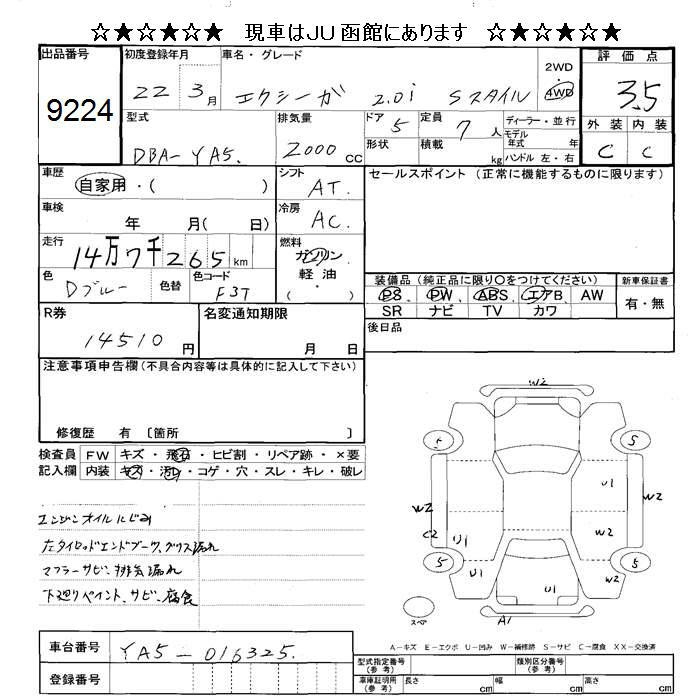 ☆★☆★☆★ 現車はJU函館にあります ☆★☆★☆★
出品番号
9224
初度登録年月
22 3月
車名・グレード
エクシーガ 2.0i Sスタイル
2WD
・
4WD
評価点
3.5
外装 内装
C C
型式
DBA-YA5.
排気量
2000 CC
ドア
5
定員
7人
形状
積載
kg
ディーラー・並行
モデル
年式 年
ハンドル 左・右
車歴
自家用・( )
シフト
AT.
車検
年 月( 日)
冷房
AC.
走行
14万7千265km
燃料
ガソリン
軽油・
( )
色
Dブルー
色替
色コード
F3T
セールスポイント(正常に機能するものに限ります)
装備品(純正品に限り○をつけてください)
PS PW ABS エアB AW
SR ナビ TV カワ
新車保証書
有・無
後日品
R券
14510円
名変通知期限
月 日
注意事項申告欄(不具合内容等は具体的に記入して下さい)
修復歴 有 〔箇所 〕
検査員
記入欄
FW キズ・飛石・ヒビ割・リペア跡・×要
内装 キズ・汚れ・コゲ・穴・スレ・キレ・破レ
エンジンオイルにじみ
左タイロッドエンドブーツ、グリス漏れ
マフラーサビ、排気漏れ
下廻りペイント、サビ、腐食
W2
5 5
U1
W2 W2
C2 U1 W2
5 5
U1 U1 W2
A1
スペア
A−キズ E−エクボ U−凹み W−補修跡 S−サビ C−腐食 XX−交換済
車台番号
YA5-016325.
登録番号
型式指定番号
(参考)
類別区分番号
(参考)
車庫証明用
(参考)
長さ cm 幅 cm 高さ cm